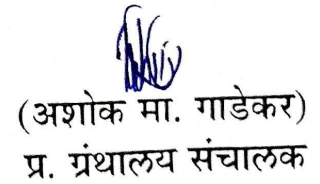 (अशोक मा. गाडेकर)
प्र. ग्रंथालय संचालक